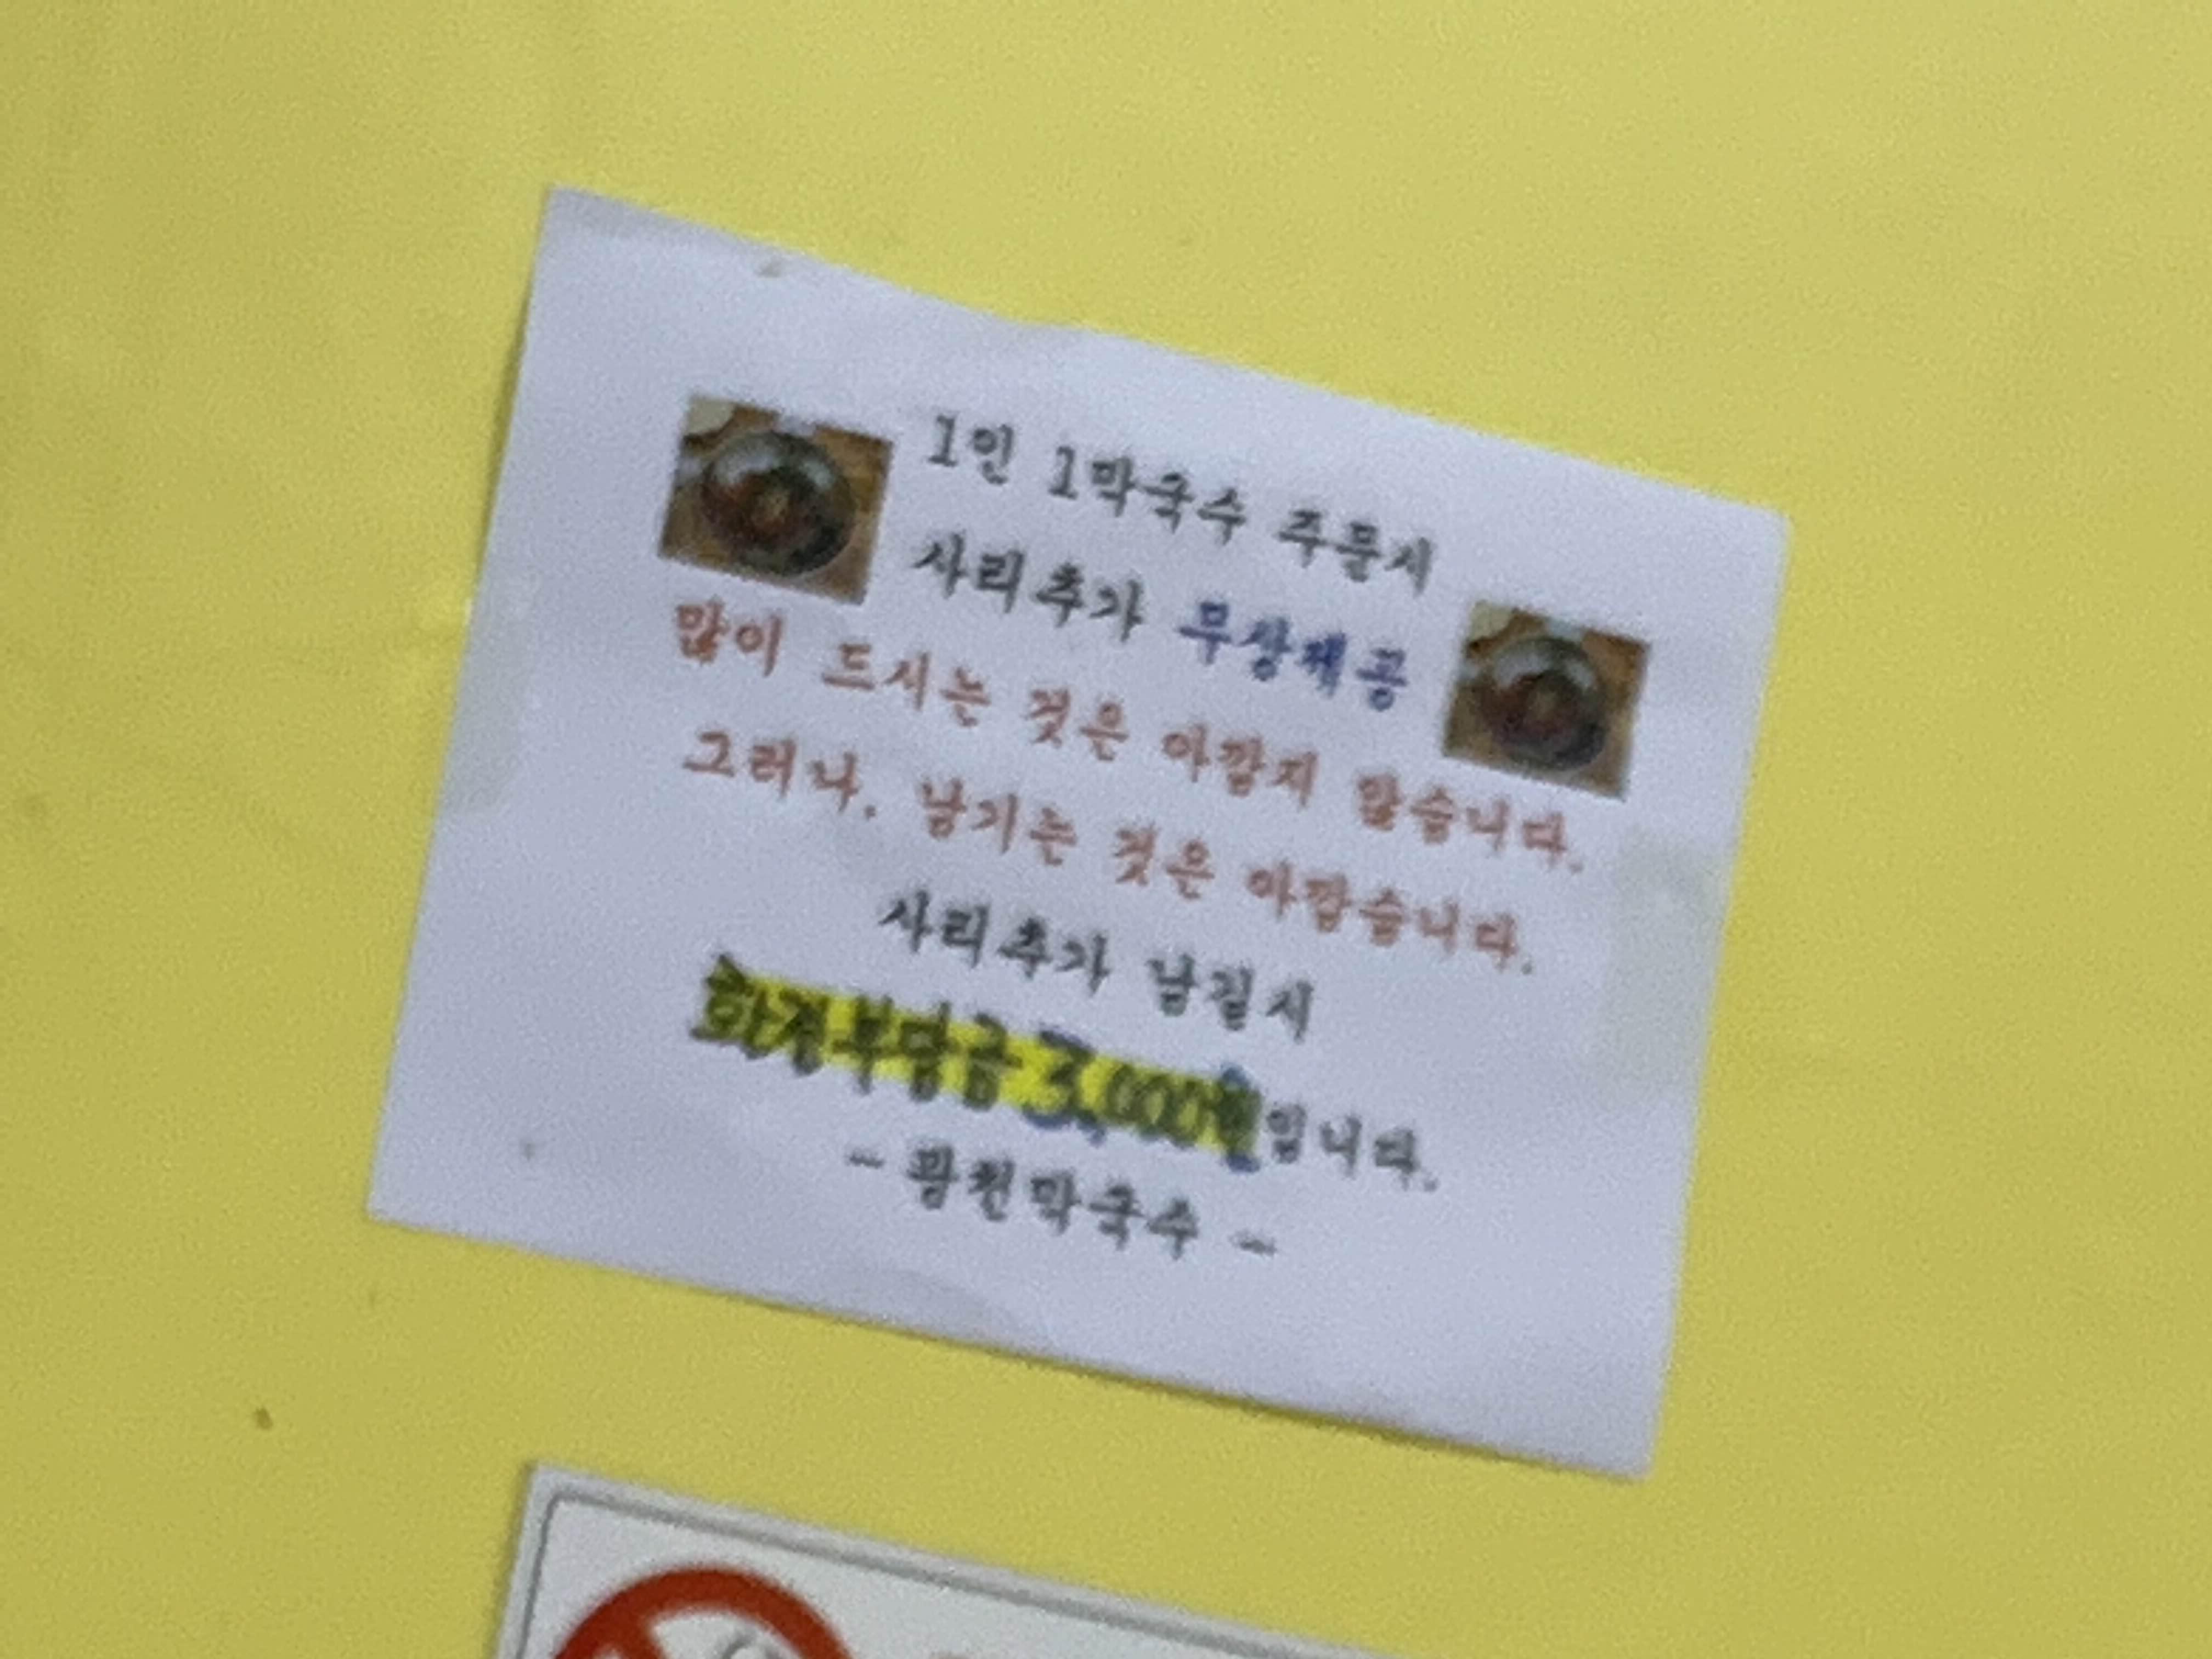 1인 1막국수 주문시
사리추가 무상제공
많이 드시는 것은 아깝지 않습니다.
그러나, 남기는 것은 아깝습니다.
사리추가 남길시
환경부담금 3,000원입니다.
- 광천막국수 -